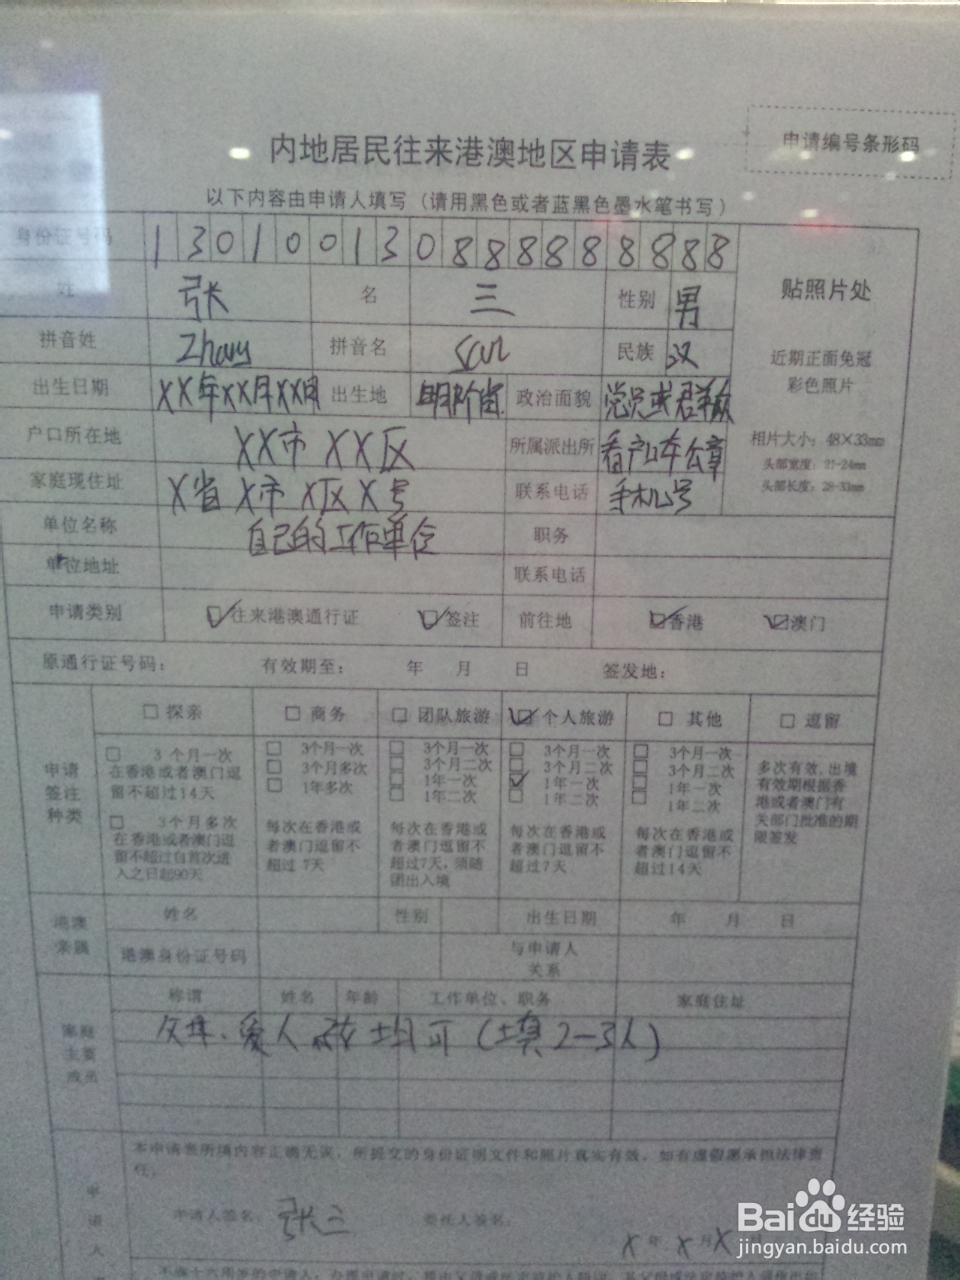 申请编号条形码
内地居民往来港澳地区申请表
以下内容由申请人填写（请用黑色或者蓝黑色墨水笔书写）
身份证号码 130100130888888888
姓 张 名 三 性别 男
贴照片处
拼音姓 Zhang 拼音名 San 民族 汉
近期正面免冠
彩色照片
出生日期 XX年XX月XX日 出生地 政治面貌 党员或群众
户口所在地 XX市 XX区 所属派出所 看户口本公章
相片大小：48×33mm
头部宽度：21-24mm
头部长度：28-33mm
家庭现住址 X省 X市 X区 X号 联系电话 手机号
单位名称 自己的工作单位 职务
单位地址 联系电话
申请类别 往来港澳通行证 签注 前往地 香港 澳门
原通行证号码： 有效期至： 年 月 日 签发地：
申请
签注
种类
探亲 商务 团队旅游 个人旅游 其他 逗留
3个月一次
在香港或者澳门逗
留不超过14天
3个月多次
在香港或者澳门逗
留不超过自首次进
入之日起90天
3个月一次
3个月多次
1年多次
每次在香港或
者澳门逗留不
超过7天
3个月一次
3个月二次
1年一次
1年二次
每次在香港或
者澳门逗留不
超过7天，须随
团出入境
3个月一次
3个月二次
1年一次
1年二次
每次在香港或
者澳门逗留不
超过7天
3个月一次
3个月二次
1年一次
1年二次
每次在香港或
者澳门逗留不
超过14天
多次有效，出境
有效期根据香
港或者澳门有
关部门批准的期
限签发
港澳
亲属
姓名 性别 出生日期 年 月 日
港澳身份证号码 与申请人
关系
家庭
主要
成员
称谓 姓名 年龄 工作单位、职务 家庭住址
父母、爱人 孩 均可（填2-3人）
本申请表所填内容正确无误，所提交的身份证明文件和照片真实有效，如有虚假愿承担法律责
任。
申请人
申请人签名： 张三 委托人签名： X年 X月 X日
Baidu经验
jingyan.baidu.com